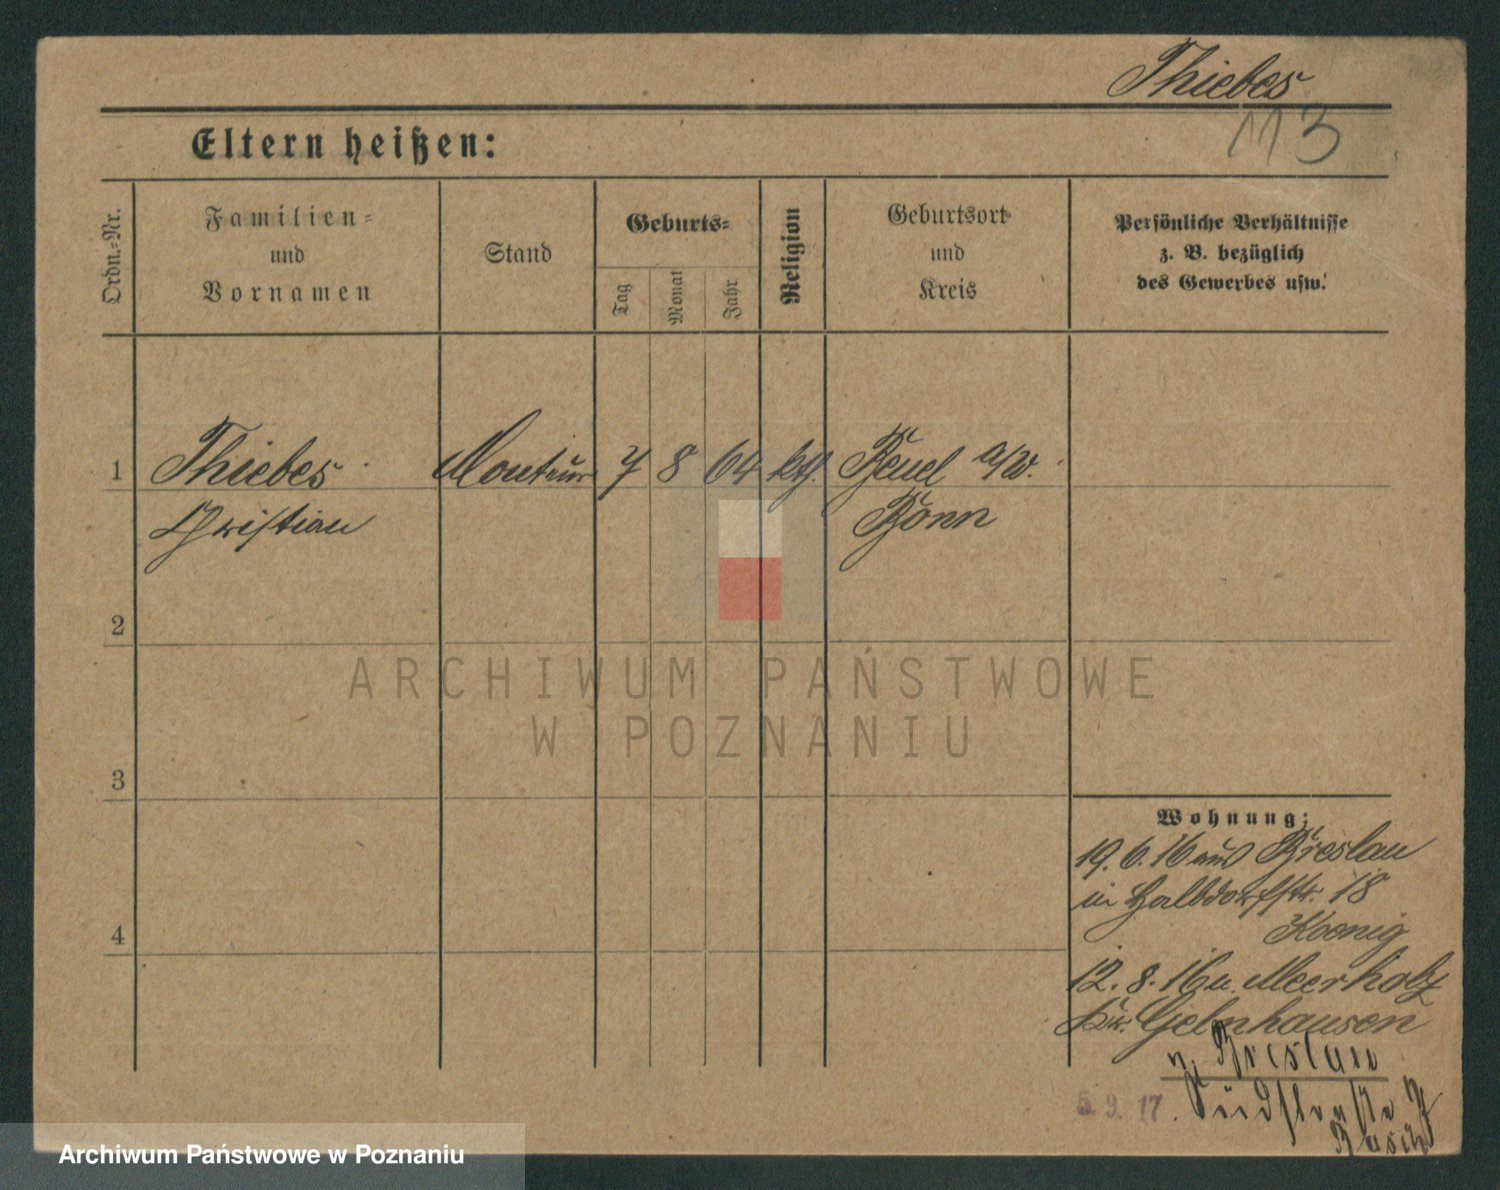 Thiebes
113
Eltern heißen:
Ordn.-Nr.
Familien-
und
Vornamen
Stand
Geburts-
Tag
Monat
Jahr
Religion
Geburtsort
und
Kreis
Persönliche Verhältnisse
z. B. bezüglich
des Gewerbes usw.
1 Thiebes Monteur 7 8 64 kth. Beuel a/Rh.
Christian Bonn
2
3
4
ARCHIWUM PAŃSTWOWE
W POZNANIU
Wohnung:
19.6.16 aus Breslau
in Halbdorfstr. 18
Koenig
12.8.16 n. Meerholz
Kr. Gelnhausen
n. Breslau
5. 9. 17. Südstraße
Archiwum Państwowe w Poznaniu